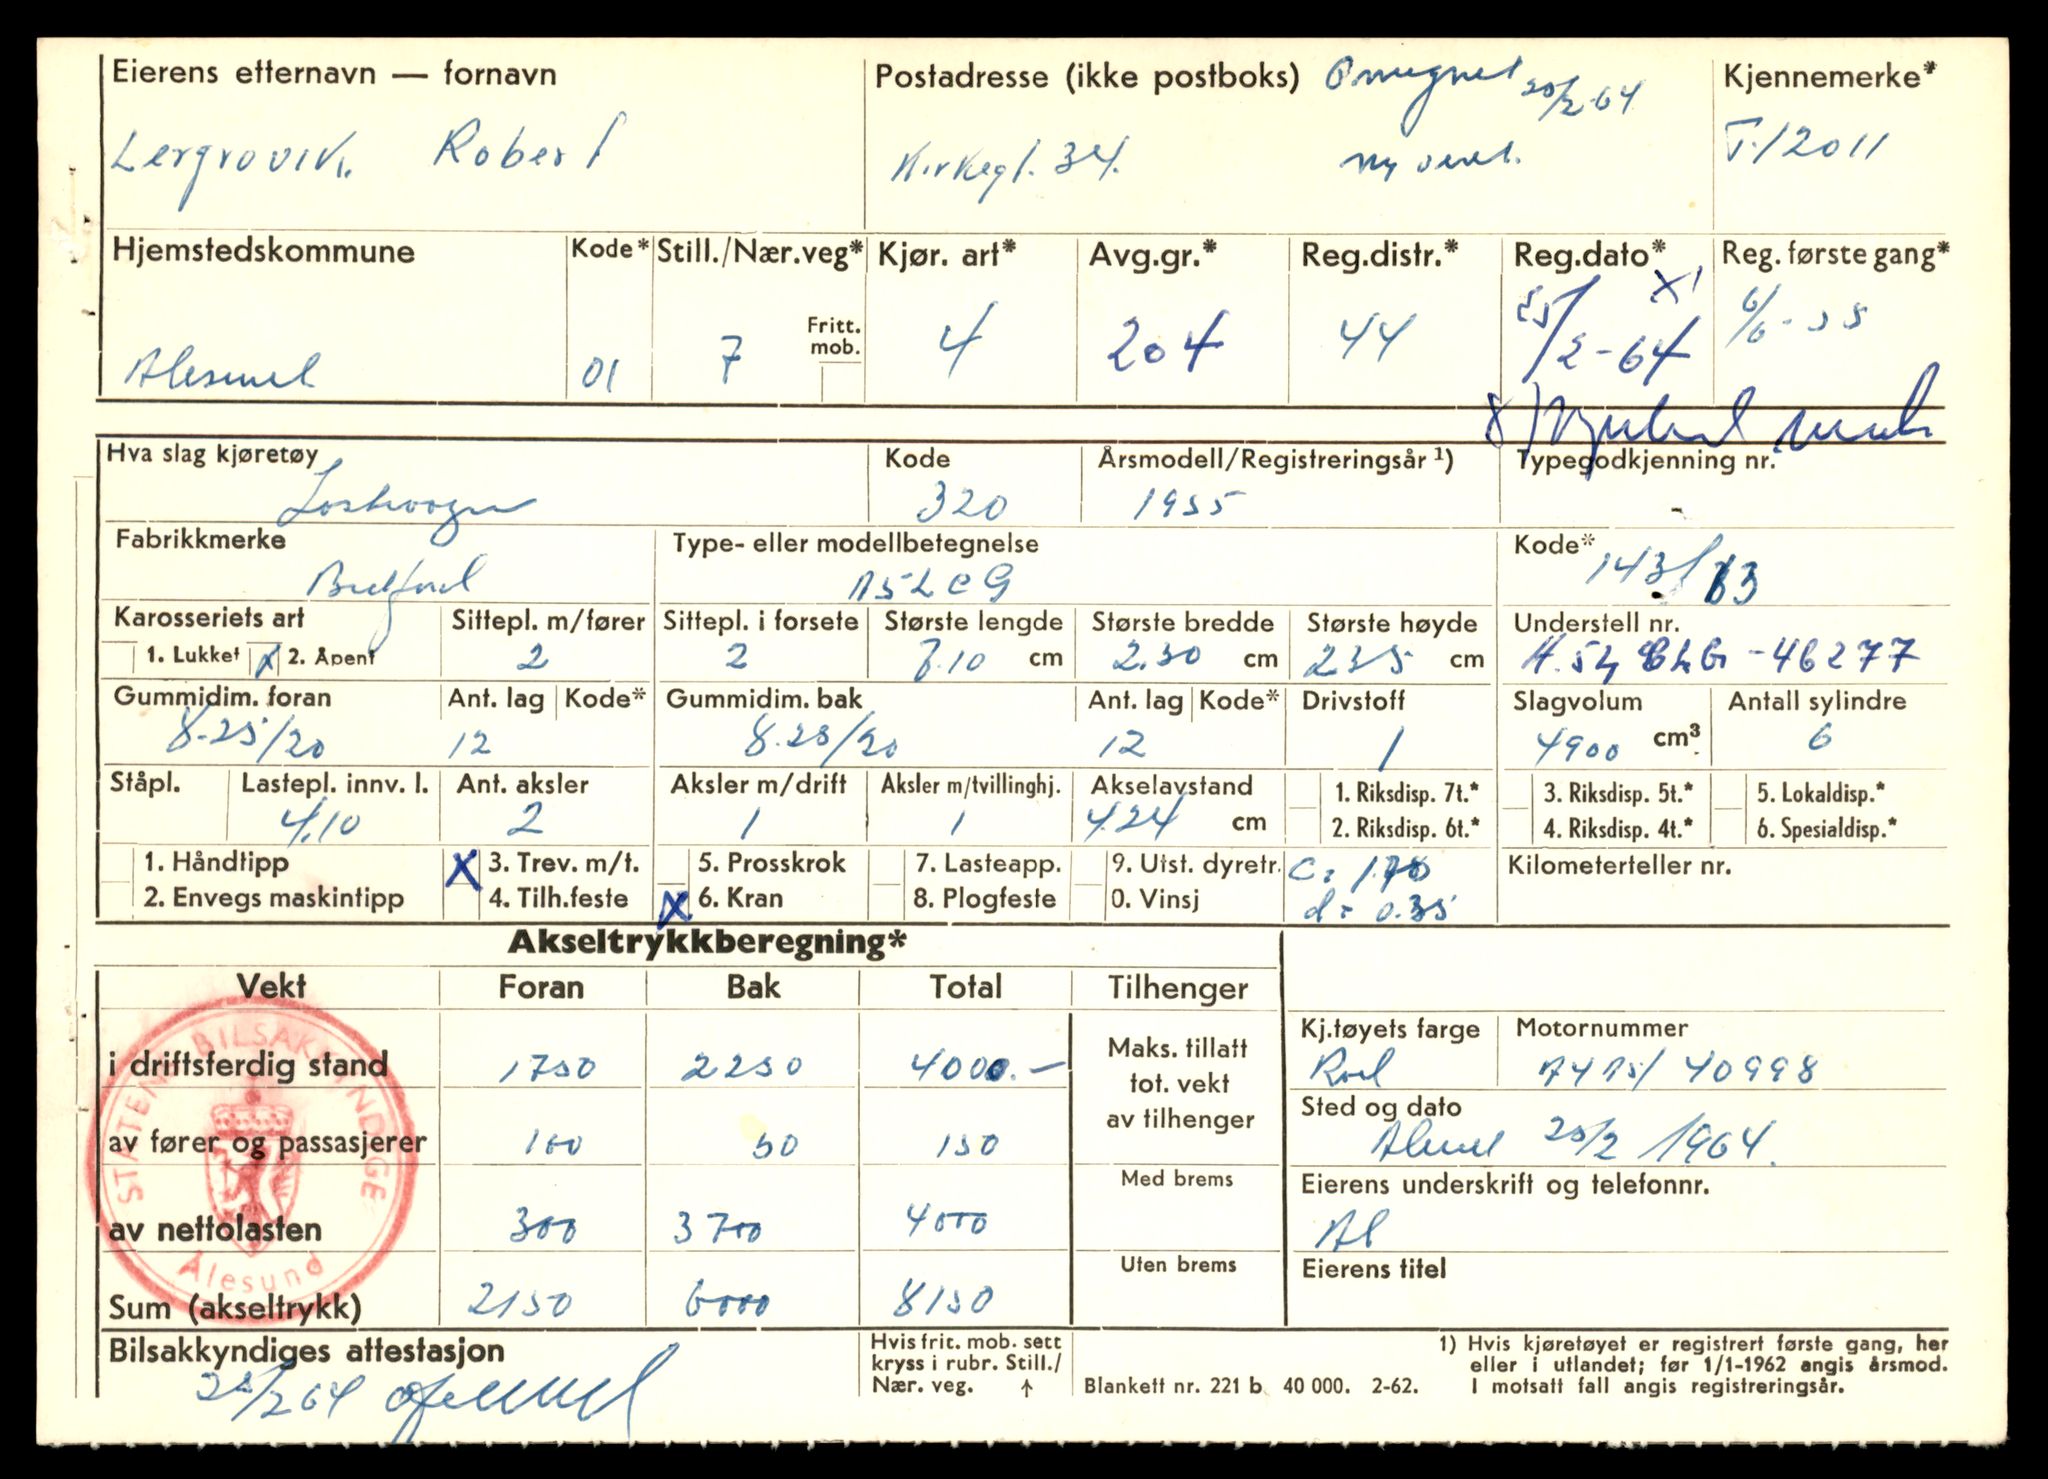 Eierens etternavn — fornavn
Lergrovik. Robert
Postadresse (ikke postboks) Omregnet 20/2-64
Kirkegt. 34. ny
Kjennemerke*
T-12011
Hjemstedskommune
Ålesund
Kode*
01
Still./Nær.veg*
7
Fritt. mob.
Kjør. art*
4
Avg.gr.*
204
Reg.distr.*
44
Reg.dato*
25/2-64
Reg. første gang*
6/6-55
Hva slag kjøretøy
Lastevogn
Kode
320
Årsmodell/Registreringsår 1)
1955
Typegodkjenning nr.
Fabrikkmerke
Bedford
Type- eller modellbetegnelse
A5LCG
Kode*
143/
Karosseriets art
1. Lukket x 2. Åpent
Sittepl. m/fører
2
Sittepl. i forsete
2
Største lengde
7.10 cm
Største bredde
2.30 cm
Største høyde
235 cm
Understell nr.
-46277
Gummidim. foran
8.25/20
Ant. lag
12
Kode*
Gummidim. bak
8.25/20
Ant. lag
12
Kode*
Drivstoff
1
Slagvolum
4900 cm³
Antall sylindre
6
Ståpl.
Lastepl. innv. l.
4.10
Ant. aksler
2
Aksler m/drift
1
Aksler m/tvillinghj.
1
Akselavstand
424 cm
1. Riksdisp. 7t.*
2. Riksdisp. 6t.*
3. Riksdisp. 5t.*
4. Riksdisp. 4t.*
5. Lokaldisp.*
6. Spesialdisp.*
1. Håndtipp
2. Envegs maskintipp
X 3. Trev. m/t.
4. Tilh.feste
5. Prosskrok
X 6. Kran
7. Lasteapp.
8. Plogfeste
9. Utst. dyretr.
0. Vinsj
c = 1.78
d = 0.35
Kilometerteller nr.
Akseltrykkberegning*
Vekt Foran Bak Total Tilhenger
i driftsferdig stand 1750 2250 4000.—
av fører og passasjerer 100 50 150
av nettolasten 300 3700 4000
Sum (akseltrykk) 2150 6000 8150
Maks. tillatt
tot. vekt
av tilhenger
Med brems
Uten brems
Kj.tøyets farge
Rød
Motornummer
40998
Sted og dato
Ålesund 25/2 1964.
Eierens underskrift og telefonnr.
Eierens titel
STATENS BILSAKKYNDIGE
Ålesund
Bilsakkyndiges attestasjon
25/2 64
Hvis frit. mob. sett
kryss i rubr. Still./
Nær. veg. ↑
Blankett nr. 221 b 40 000. 2-62.
1) Hvis kjøretøyet er registrert første gang, her
eller i utlandet; før 1/1-1962 angis årsmod.
I motsatt fall angis registreringsår.